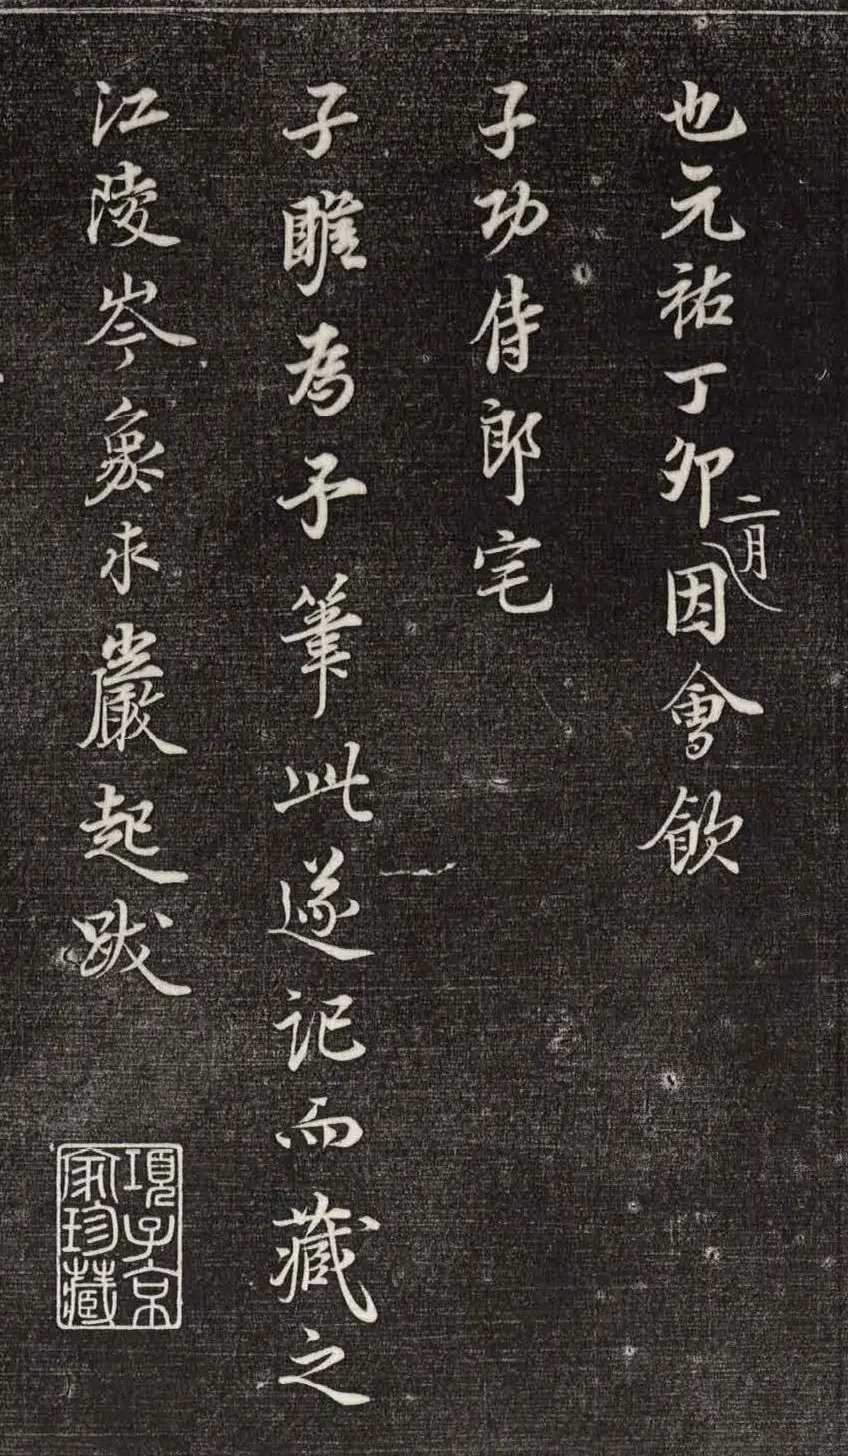 也元祐丁卯二月因會飲
子功侍郎宅
子睢為予筆此遂記而藏之
江陵岑象求巖起跋
項子京
家珍藏